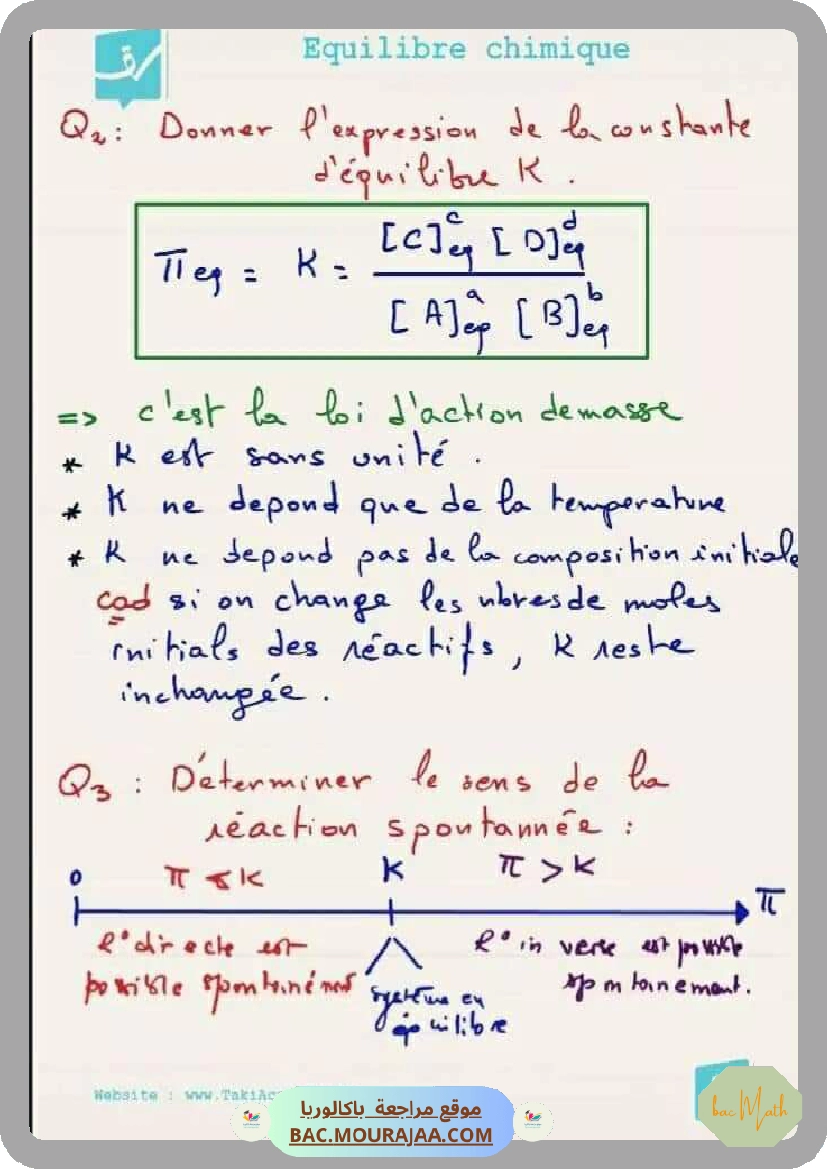 Equilibre chimique
Q₂ : Donner l'expression de la constante
d'équilibre K .
πeq = K = [C]^c eq [D]^d eq / [A]^a eq [B]^b eq
=> c'est la loi d'action de masse
* K est sans unité .
* K ne depond que de la temperature
* K ne depond pas de la composition initiale
cad si on change les nbres de moles
initials des réactifs , K reste
inchangée .
Q3 : Déterminer le sens de la
réaction spontannée :
0 π < K K π > K
π
l° directe est
possible spontanément
système en
équilibre
l° inverse est possible
spontainement.
Website : www.TakiAc
موقع مراجعة باكالوريا
BAC.MOURAJAA.COM
bac Math